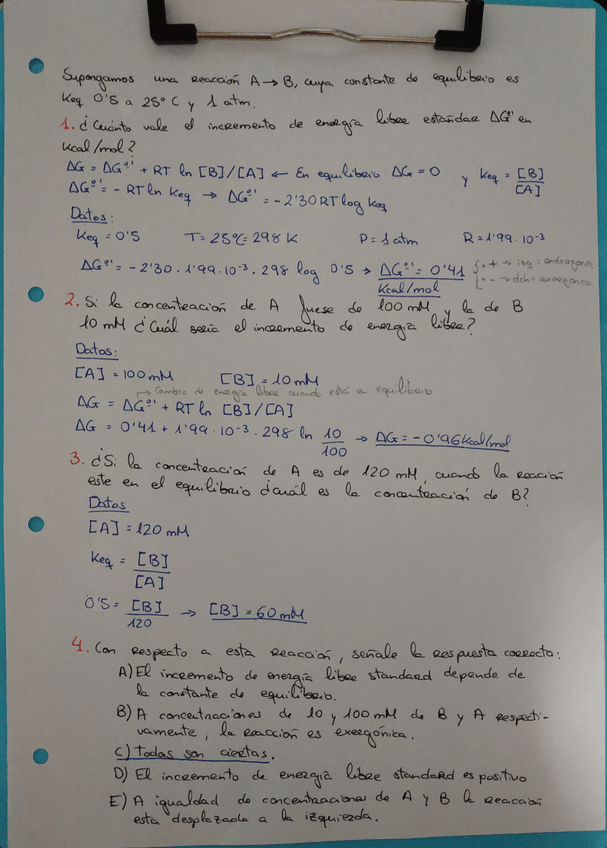 Supongamos una reacción A → B, cuya constante de equilibrio es
Keq 0'5 a 25°C y 1 atm.
1. ¿Cuánto vale el incremento de energía libre estándar ΔG°' en
Kcal/mol?
ΔG = ΔG°' + RT ln [B]/[A] ← En equilibrio ΔG = 0 y Keq = [B]/[A]
ΔG°' = - RT ln Keq → ΔG°' = -2'30 RT log Keq
Datos:
Keq = 0'5 T = 25°C = 298 K P = 1 atm R = 1'99 · 10⁻³
ΔG°' = -2'30 · 1'99 · 10⁻³ · 298 log 0'5 → ΔG°' = 0'41
Kcal/mol
· + → izq = endergónica
· - → dch = exergónica
2. Si la concentración de A fuese de 100 mM y la de B
10 mM ¿Cuál sería el incremento de energía libre?
Datos:
[A] = 100 mM [B] = 10 mM
→ Cambio de energía libre cuando está a equilibrio
ΔG = ΔG°' + RT ln [B]/[A]
ΔG = 0'41 + 1'99 · 10⁻³ · 298 ln 10/100 → ΔG = -0'96 Kcal/mol
3. ¿Si la concentración de A es de 120 mM, cuando la reacción
este en el equilibrio ¿cuál es la concentración de B?
Datos
[A] = 120 mM
Keq = [B]/[A]
0'5 = [B]/120 → [B] = 60 mM
4. Con respecto a esta reacción, señale la respuesta correcta:
A) El incremento de energía libre standard depende de
la constante de equilibrio.
B) A concentraciones de 10 y 100 mM de B y A respecti-
vamente, la reacción es exergónica.
C) Todas son ciertas.
D) El incremento de energía libre standard es positivo
E) A igualdad de concentraciones de A y B la reacción
esta desplazada a la izquierda.